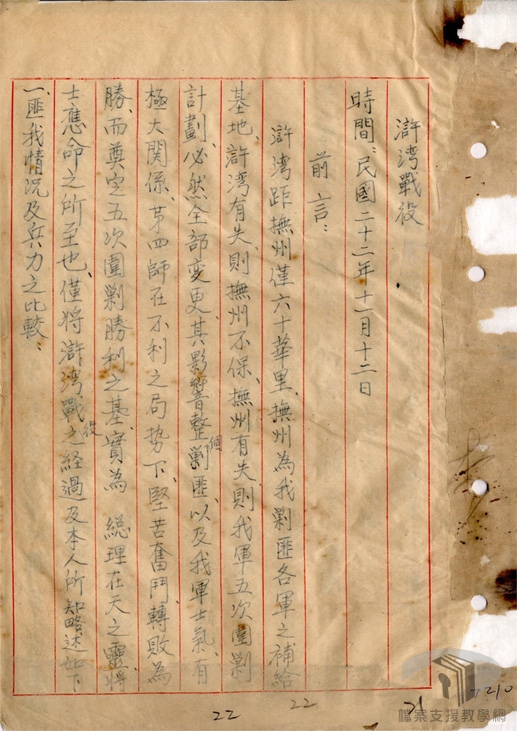 滸湾戰役
時間：民國二十二年十一月十二日
前言：
滸湾距撫州僅六十華里、撫州為我剿匪各軍之補給
基地、滸湾有失、則撫州不保、撫州有失、則我軍五次圍剿
計劃、必然全部变更、其影響整個剿匪、以及我軍士氣、有
極大關係、第四師在不利之局势下、堅苦奮鬥、轉敗為
勝、而奠定五次圍剿勝利之基、實為 總理在天之靈、將
士應命之所至也、僅將滸湾戰役之経過及本人所知略述如下
一、匪我情況及兵力之比較：
22
22
21
210
檔案支援教學網